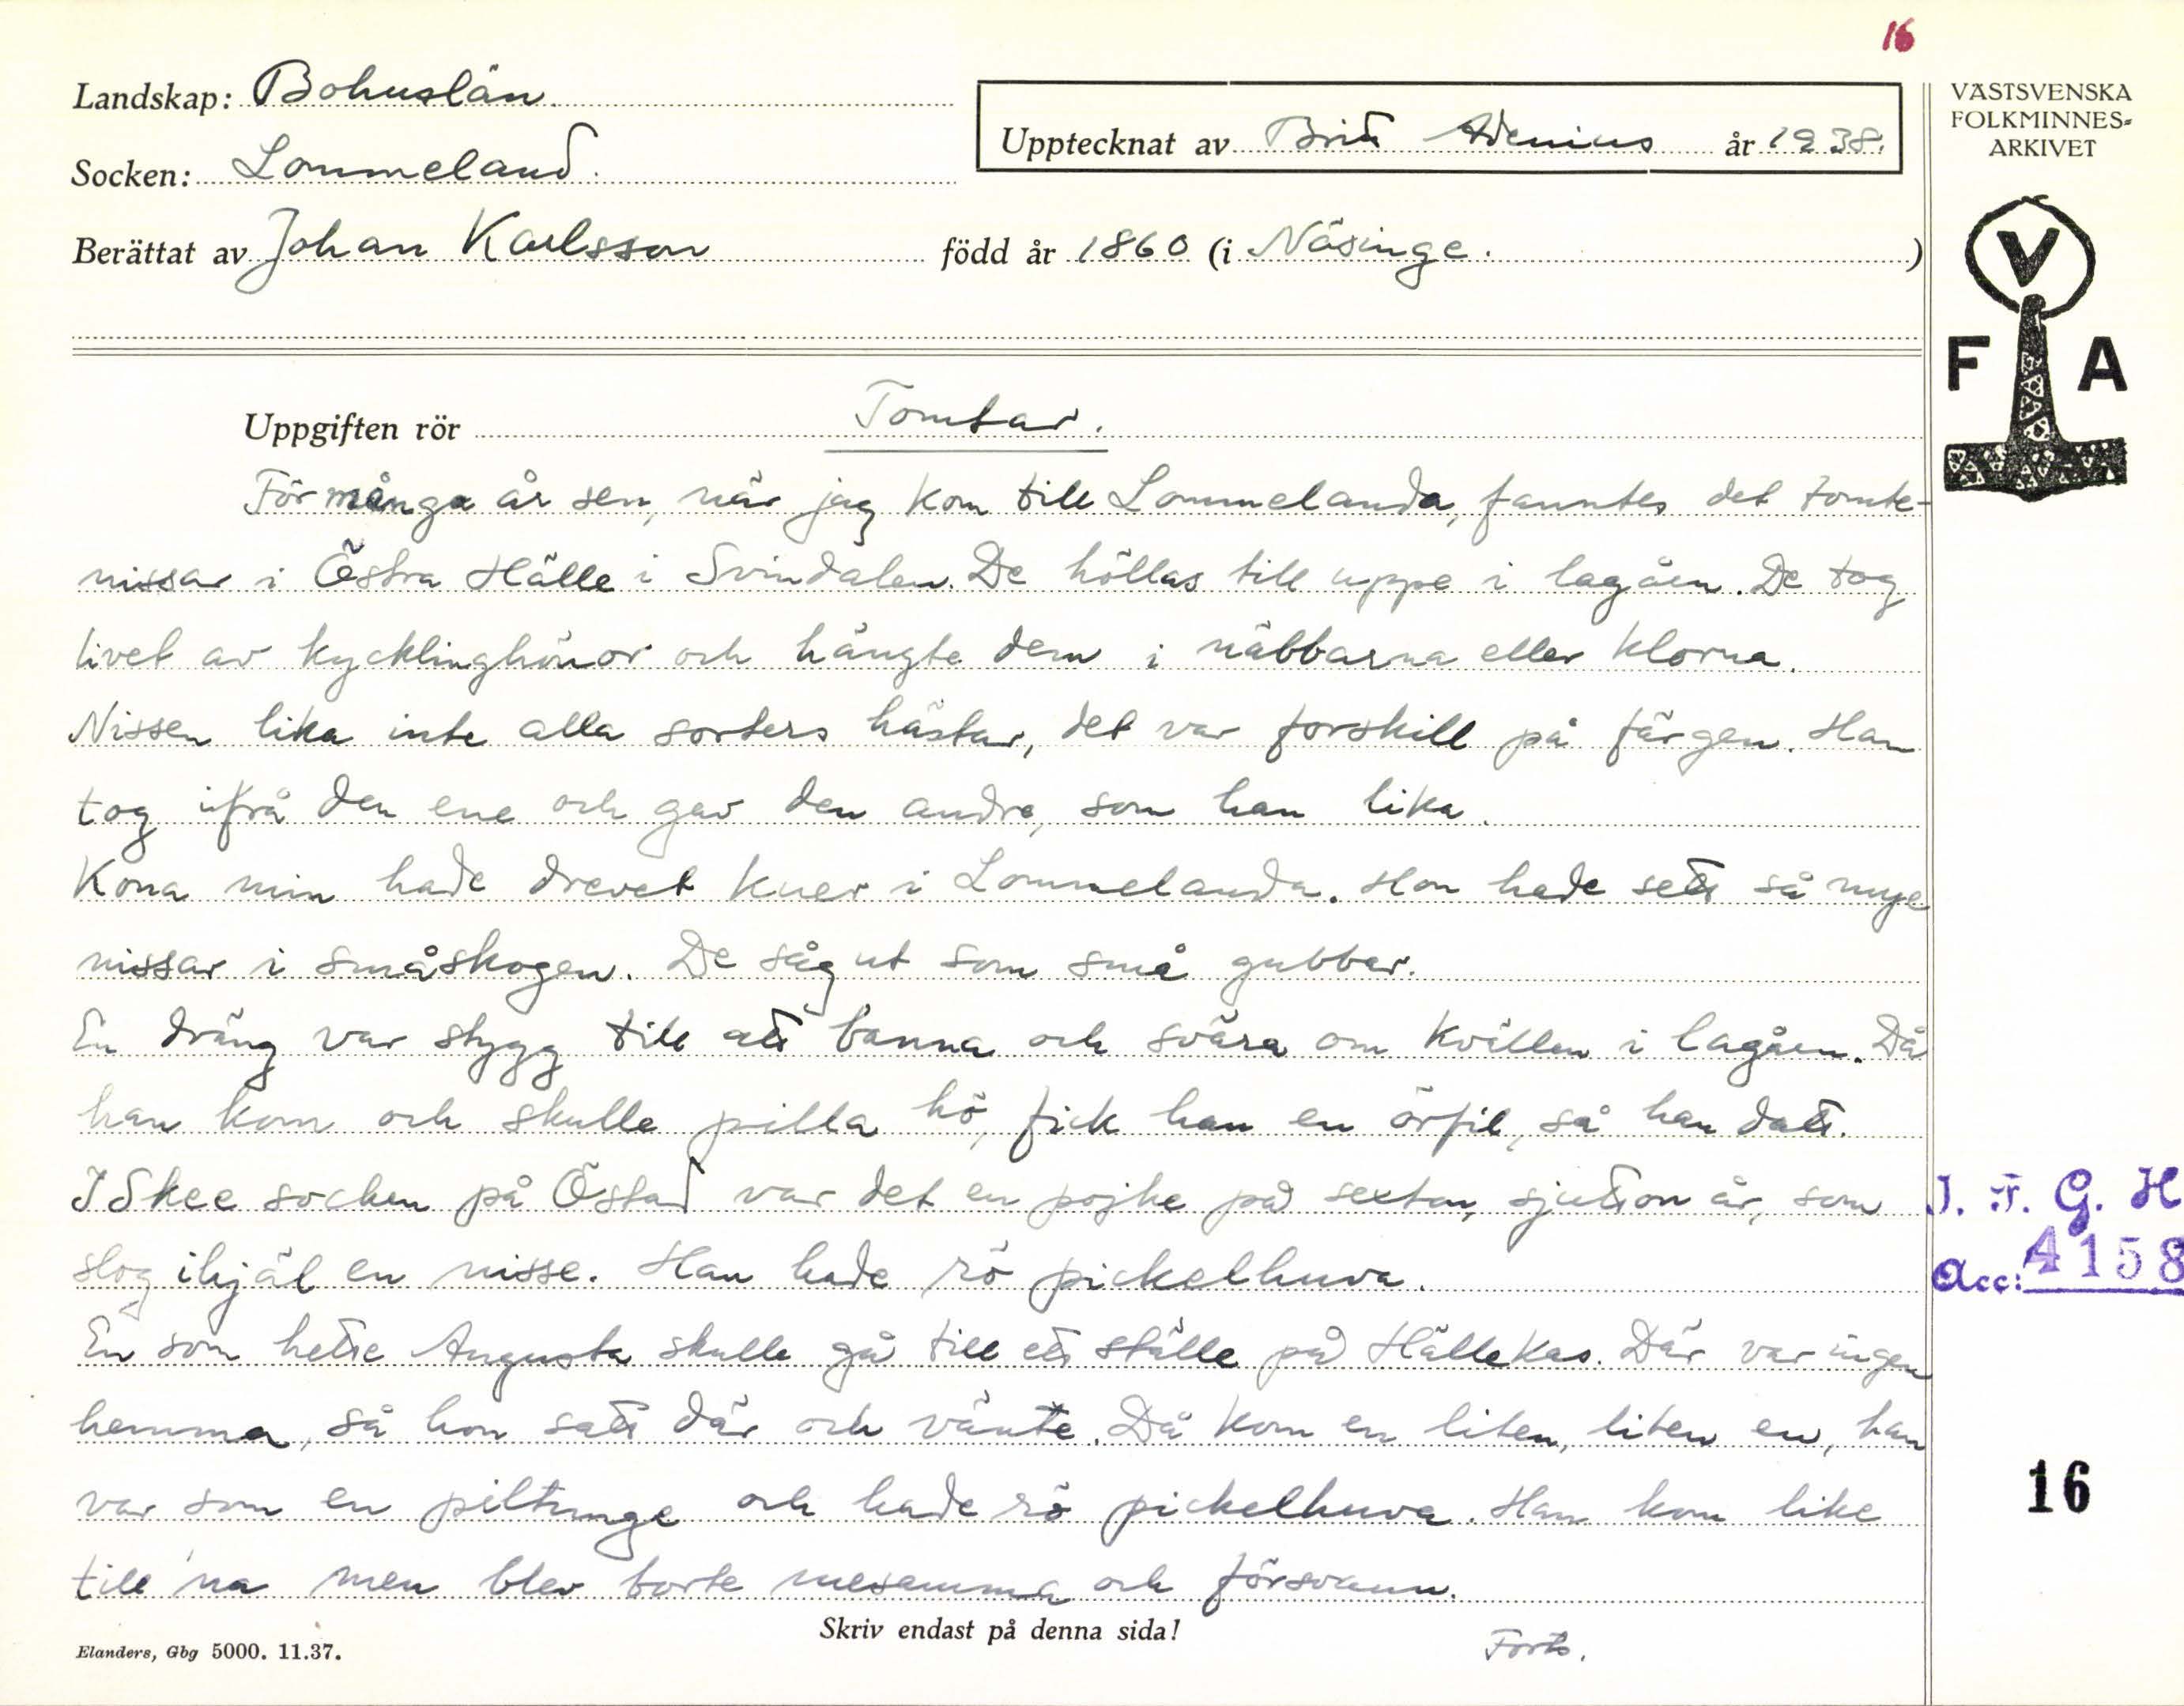 16
Landskap: Bohuslän
Upptecknat av Britt Adenius år 1938.
VÄSTSVENSKA
FOLKMINNES=
ARKIVET
Socken: Lommeland.
Berättat av Johan Karlsson född år 1860 (i Näsinge. )
V
F A
Uppgiften rör Tomtar.
För många år sen, när jag kom till Lommelanda, fanntes det tomte-
nissar i Östra Hälle i Svindalen. De höllas till uppe i lagåen. De tog
livet av kycklinghönor och hängte dem i näbbarna eller klorna.
Nissen lika inte alla sorters hästar, det var forskill på färgen. Han
tog ifrå den ene och gav den andre, som han lika.
Kona min hade drevet kuer i Lommelanda. Hon hade sett så mye
nissar i småskogen. De såg ut som små gubbar.
En dräng var stygg till att banna och svära om kvällen i lagåen. Då
han kom och skulle pilla hö, fick han en örfil, så han datt.
I Skee socken på Östad var det en pojke på sexton, sjutton år, som
slog ihjäl en nisse. Han hade rö pickelhuva.
En som hette Augusta skulle gå till ett ställe på Hällekas. Där var ingen
hemma, så hon satt där och vänte. Då kom en liten, liten en, han
var som en piltunge och hade rö pickelhuva. Han kom like
till 'na men blev borte mesamma och försvann.
I. F. G. H
Acc: 4158
16
Skriv endast på denna sida!
Forts.
Elanders, Gbg 5000. 11.37.